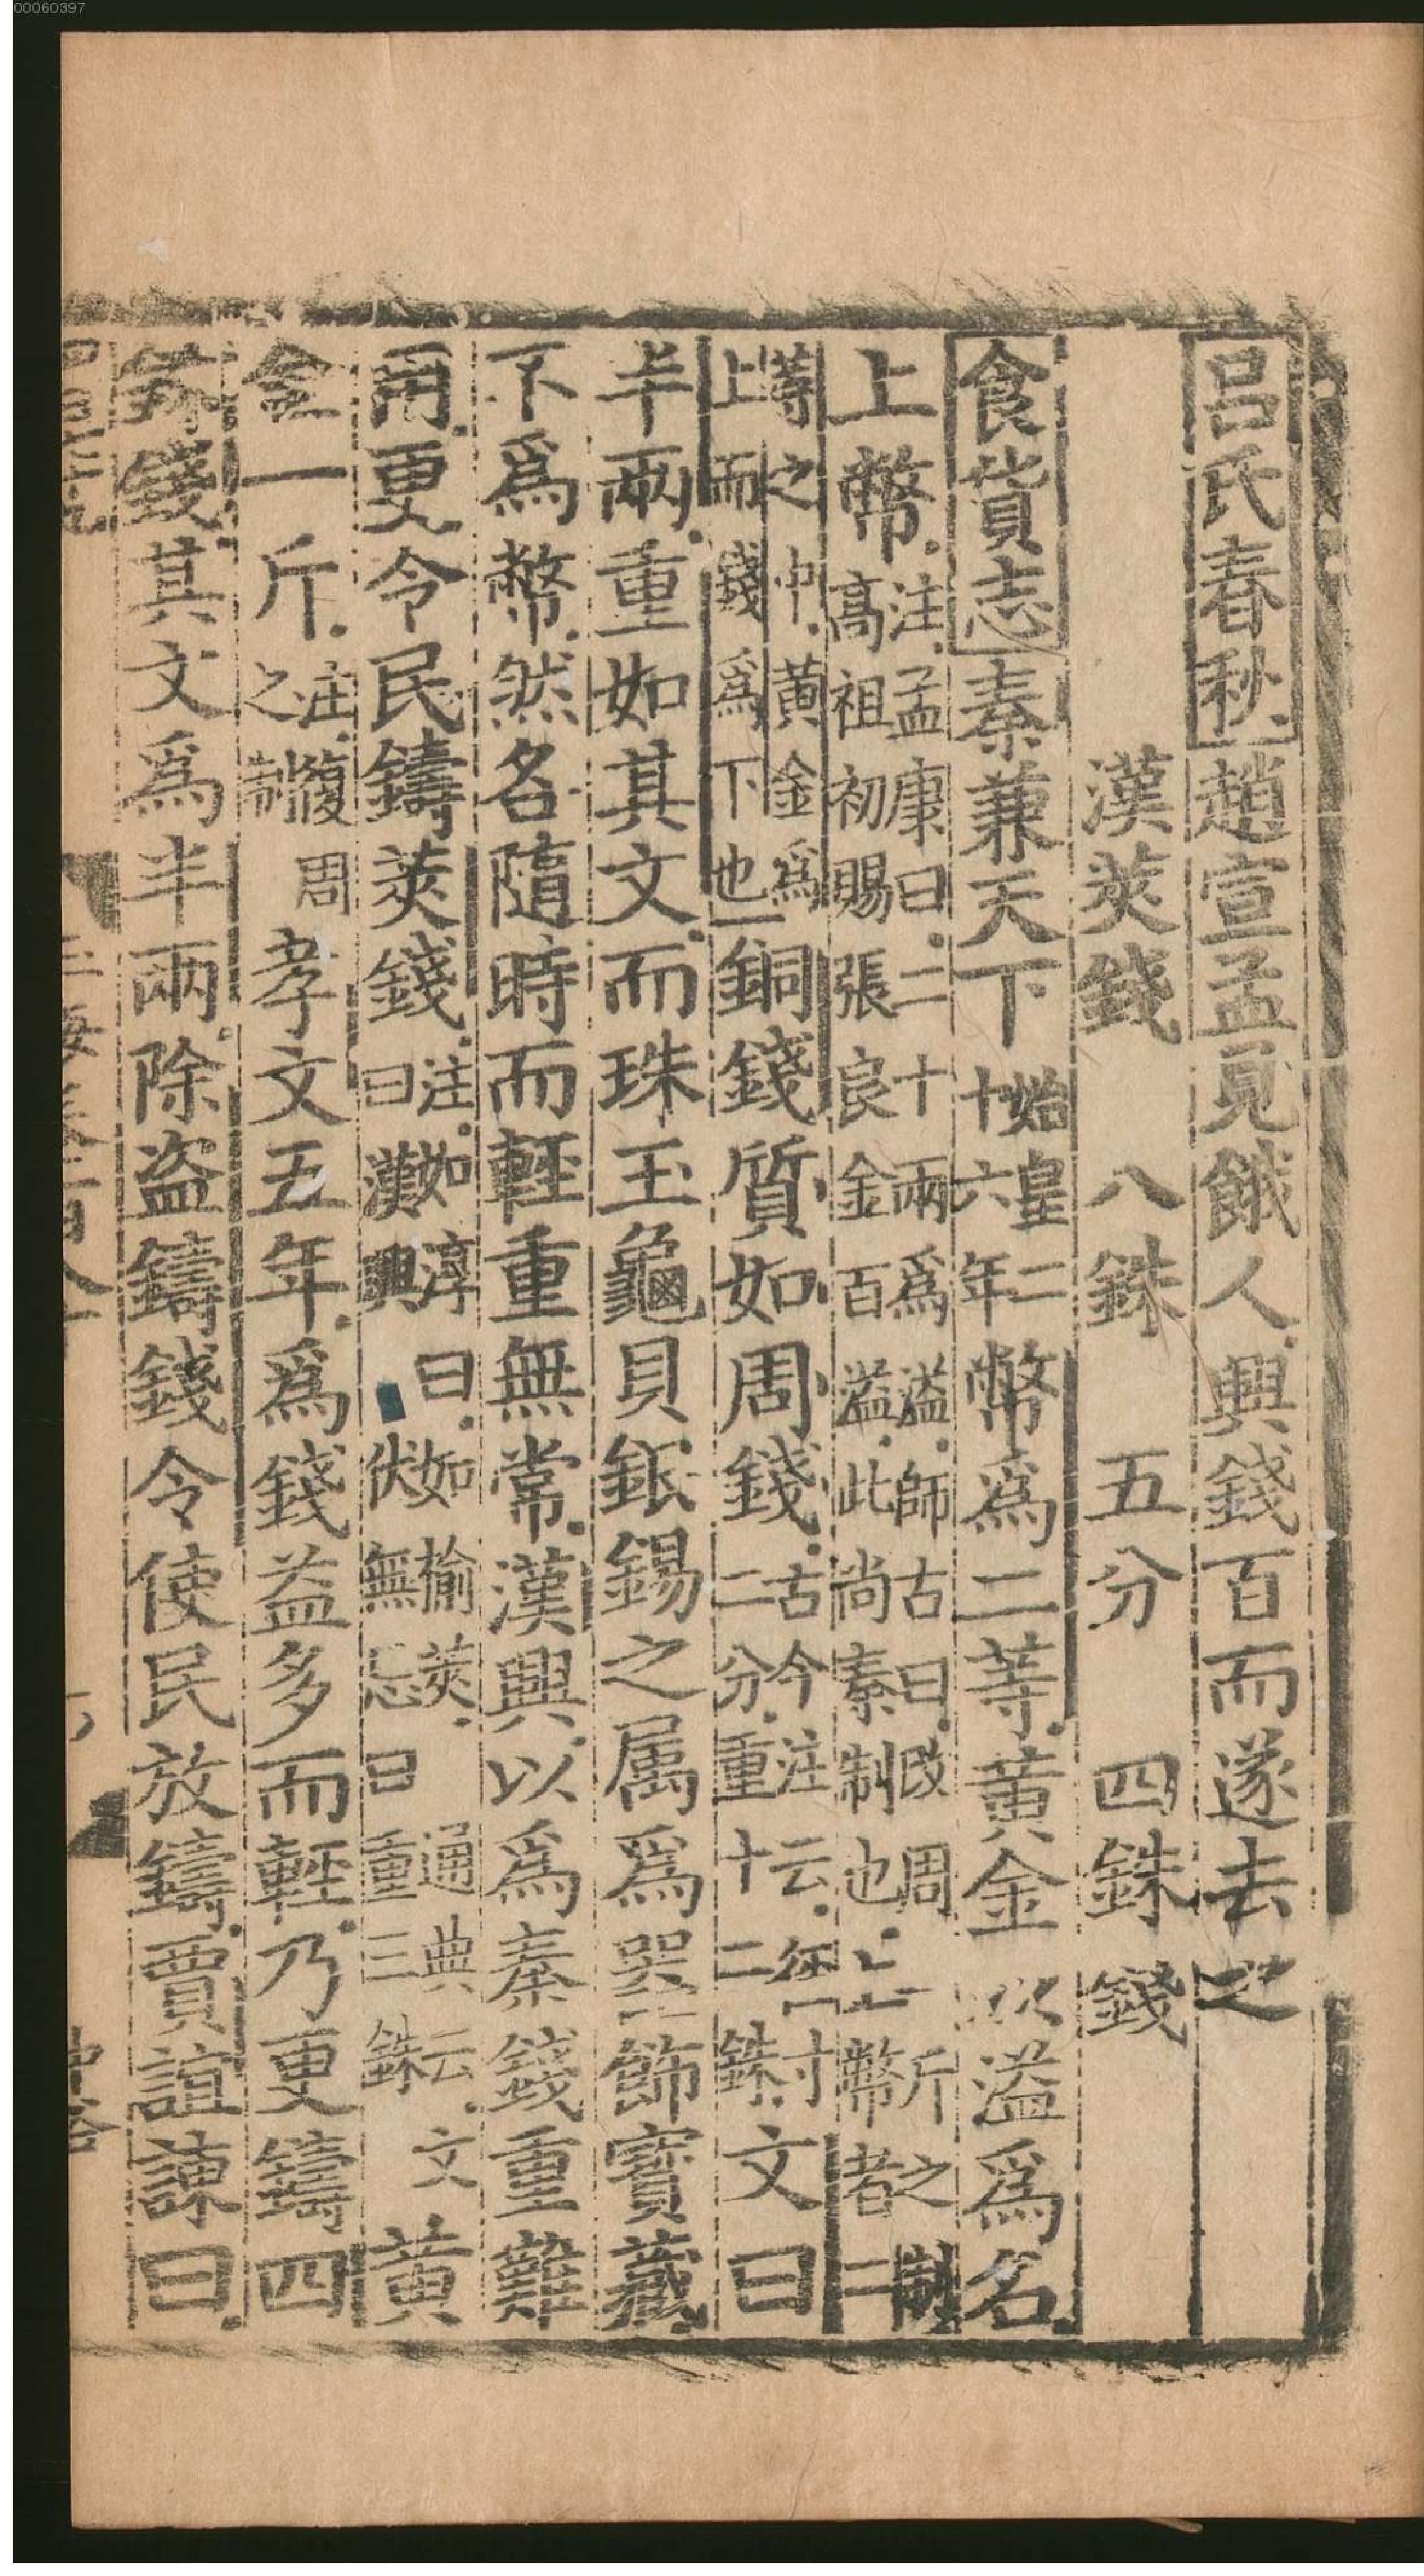 00060397
呂氏春秋趙宣孟見餓人與錢百而遂去之
漢莢錢 八銖 五分 四銖錢
食貨志秦兼天下始皇二十六年幣爲二等黃金以溢爲名
上幣注孟康曰二十兩爲溢師古曰改周一斤之制高祖初賜張良金百溢此尚秦制也上幣者二
等之中黃金爲上而錢爲下也銅錢質如周錢古今注云徑一寸二分重十二銖文曰
半兩重如其文而珠玉龜貝銀錫之属爲器飾寶藏
不爲幣然名隨時而輕重無常漢興以爲秦錢重難
用更令民鑄莢錢注如淳曰如榆莢通典云文曰漢興伏無忌曰重三銖黃
金一斤注復周之制孝文五年爲錢益多而輕乃更鑄四
銖錢其文爲半兩除盜鑄錢令使民放鑄賈誼諫曰